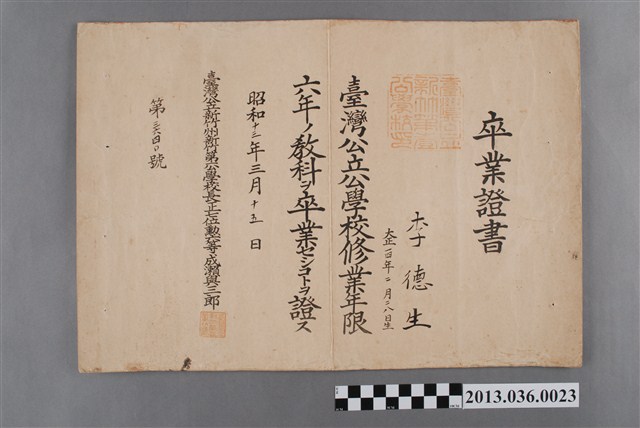 卒業證書
李德生
大正一四年二月二八日生
臺灣公立公學校修業年限
六年ノ敎科ヲ卒業セシコトヲ證ス
昭和十三年三月十五日
臺灣公立新竹州新竹第一公學校長正七位勲八等成瀨與三郎
第 號
2013.036.0023